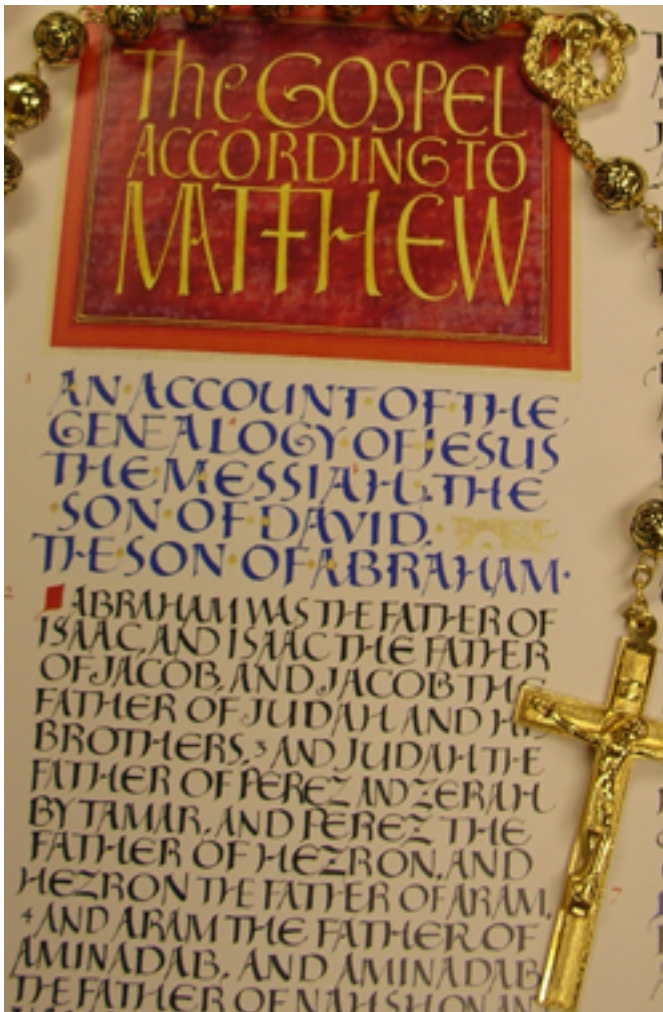 The GOSPEL
ACCORDING TO
MATTHEW
1 AN ACCOUNT OF THE
GENEALOGY OF JESUS
THE MESSIAH, THE
SON OF DAVID,
THE SON OF ABRAHAM.
2 ABRAHAM WAS THE FATHER OF
ISAAC, AND ISAAC THE FATHER
OF JACOB, AND JACOB THE
FATHER OF JUDAH AND HIS
BROTHERS, 3 AND JUDAH THE
FATHER OF PEREZ AND ZERAH
BY TAMAR, AND PEREZ THE
FATHER OF HEZRON, AND
HEZRON THE FATHER OF ARAM,
4 AND ARAM THE FATHER OF
AMINADAB, AND AMINADAB
THE FATHER OF NAHSHON, AN
7